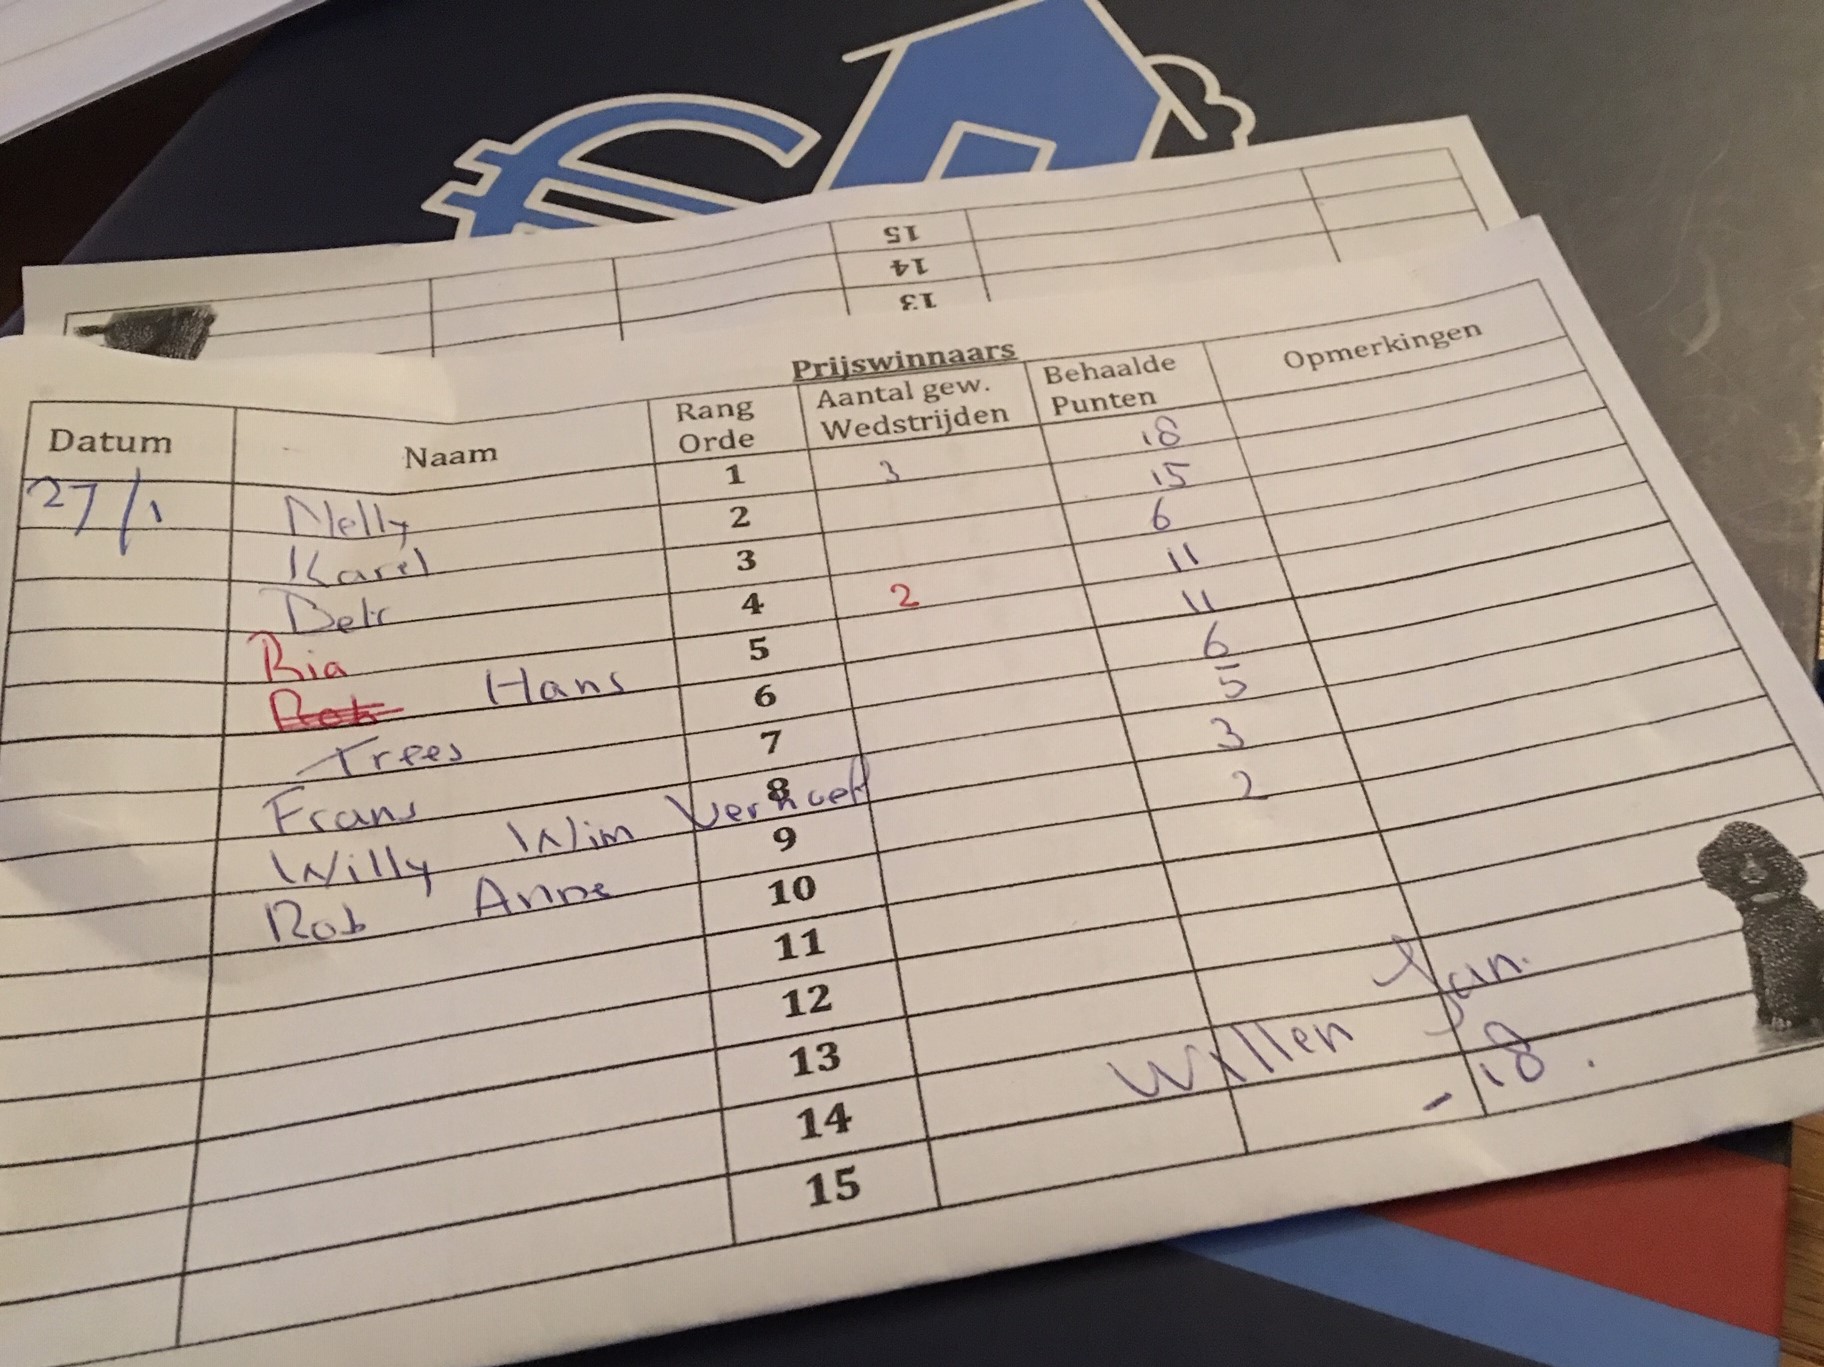 15
14
13
Prijswinnaars
Datum Naam Rang Orde Aantal gew. Wedstrijden Behaalde Punten Opmerkingen
27/1 Nelly 1 3 18
Karel 2 15
3 6
Ria 4 2 11
Rob Hans 5 11
Trees 6 6
Frans 7 5
Willy Wim Verhoef 8 3
Rob Anne 9 2
10
11
12
13
14
15
Willen Jan.
- 18.